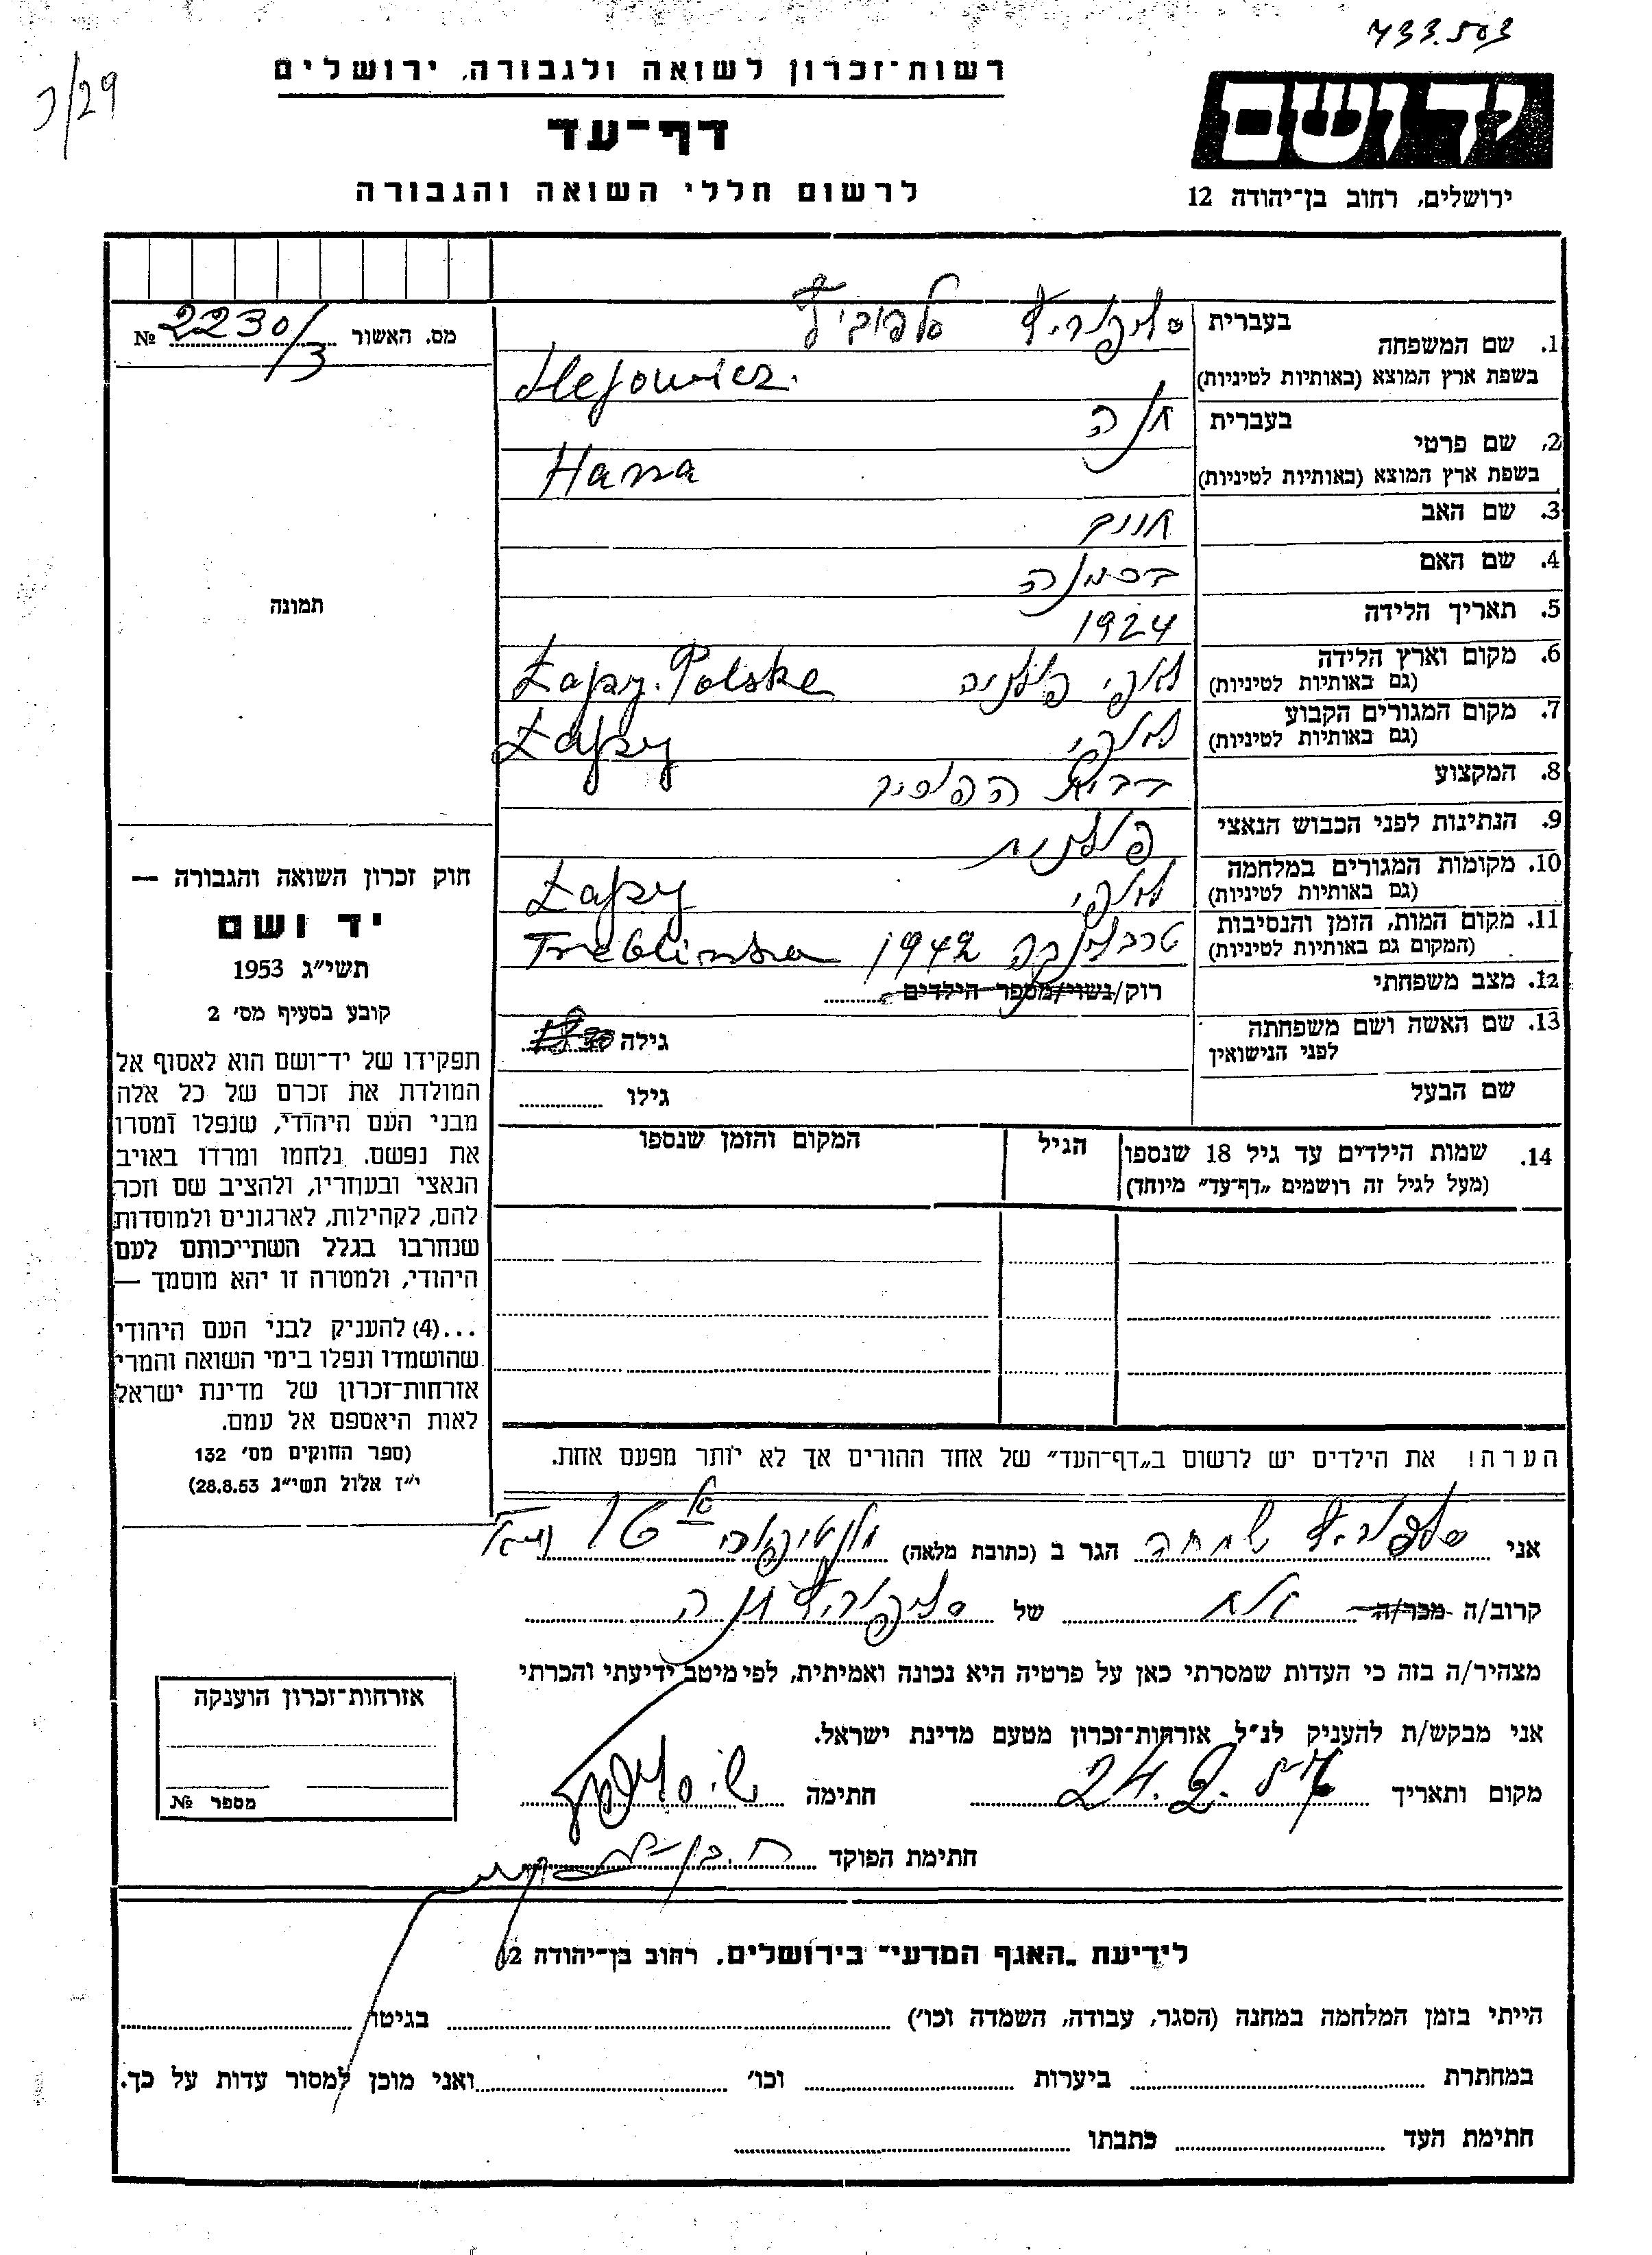 733.503
כ/29
רשות־זכרון לשואה ולגבורה, ירושלים
דף־עד
לרשום חללי השואה והגבורה
יד ושם
ירושלים, רחוב בן־יהודה 12
מס. האשור 2230/3 №
1. שם המשפחה
בעברית
בשפת ארץ המוצא (באותיות לטיניות)
2. שם פרטי
בעברית חנה
בשפת ארץ המוצא (באותיות לטיניות) Hana
3. שם האב חונה
4. שם האם
5. תאריך הלידה 1924
6. מקום וארץ הלידה לאפי פולניה Łapy. Polska
(גם באותיות לטיניות)
7. מקום המגורים הקבוע לאפי Łapy
(גם באותיות לטיניות)
8. המקצוע
9. הנתינות לפני הכבוש הנאצי פולנית
10. מקומות המגורים במלחמה לאפי Łapy
(גם באותיות לטיניות)
11. מקום המות, הזמן והנסיבות טרבלינקה 1942 Treblinka
(המקום גם באותיות לטיניות)
12. מצב משפחתי רוק/נשוי/מספר הילדים
13. שם האשה ושם משפחתה
לפני הנישואין
גילה
שם הבעל
גילו
14. שמות הילדים עד גיל 18 שנספו
(מעל לגיל זה רושמים „דף־עד״ מיוחד)
הגיל
המקום והזמן שנספו
תמונה
חוק זכרון השואה והגבורה —
יד ושם
תשי״ג 1953
קובע בסעיף מס׳ 2
תפקידו של יד־ושם הוא לאסוף אל
המולדת את זכרם של כל אלה
מבני העם היהודי, שנפלו ומסרו
את נפשם, נלחמו ומרדו באויב
הנאצי ובעוזריו, ולהציב שם וזכר
להם, לקהילות, לארגונים ולמוסדות
שנחרבו בגלל השתייכותם לעם
היהודי, ולמטרה זו יהא מוסמך —
...(4) להעניק לבני העם היהודי
שהושמדו ונפלו בימי השואה והמרי
אזרחות־זכרון של מדינת ישראל
לאות היאספם אל עמם.
(ספר החוקים מס׳ 132
י״ז אלול תשי״ג 28.8.53)
הערה! את הילדים יש לרשום ב„דף־העד״ של אחד ההורים אך לא יותר מפעם אחת.
אני שמחה הגר ב (כתובת מלאה)
קרוב/ה מכר/ה אח של חנה
מצהיר/ה בזה כי העדות שמסרתי כאן על פרטיה היא נכונה ואמיתית, לפי מיטב ידיעתי והכרתי
אני מבקש/ת להעניק לנ״ל אזרחות־זכרון מטעם מדינת ישראל.
מקום ותאריך 24.2.57 חתימה
חתימת הפוקד
אזרחות־זכרון הוענקה
מספר №
לידיעת „האגף המדעי״ בירושלים, רחוב בן־יהודה 12
הייתי בזמן המלחמה במחנה (הסגר, עבודה, השמדה וכו׳) בגיטו
במחתרת ביערות וכו׳ ואני מוכן למסור עדות על כך.
חתימת העד כתבתו